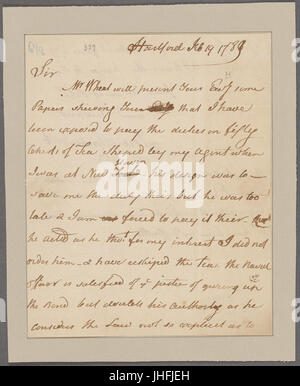 Hartford Feb 19 1789
Sir
Mr Wheat will present Your Excy some
Papers shewing Your that I have
been exposed to pay the duties on fifty
Chests of Tea shiped by my Agent when
I was at New his design was to
save me the duty but he was too
late & I am forced to pay it
he acted as he tho't for my interest I did not
order them & have reshiped the tea the Naval
officer is satisfied of ye justice of giving up
the bond but doubts his authority as he
considers the Law not so explicit as to
alamy
Image ID: JHFJEH
www.alamy.com